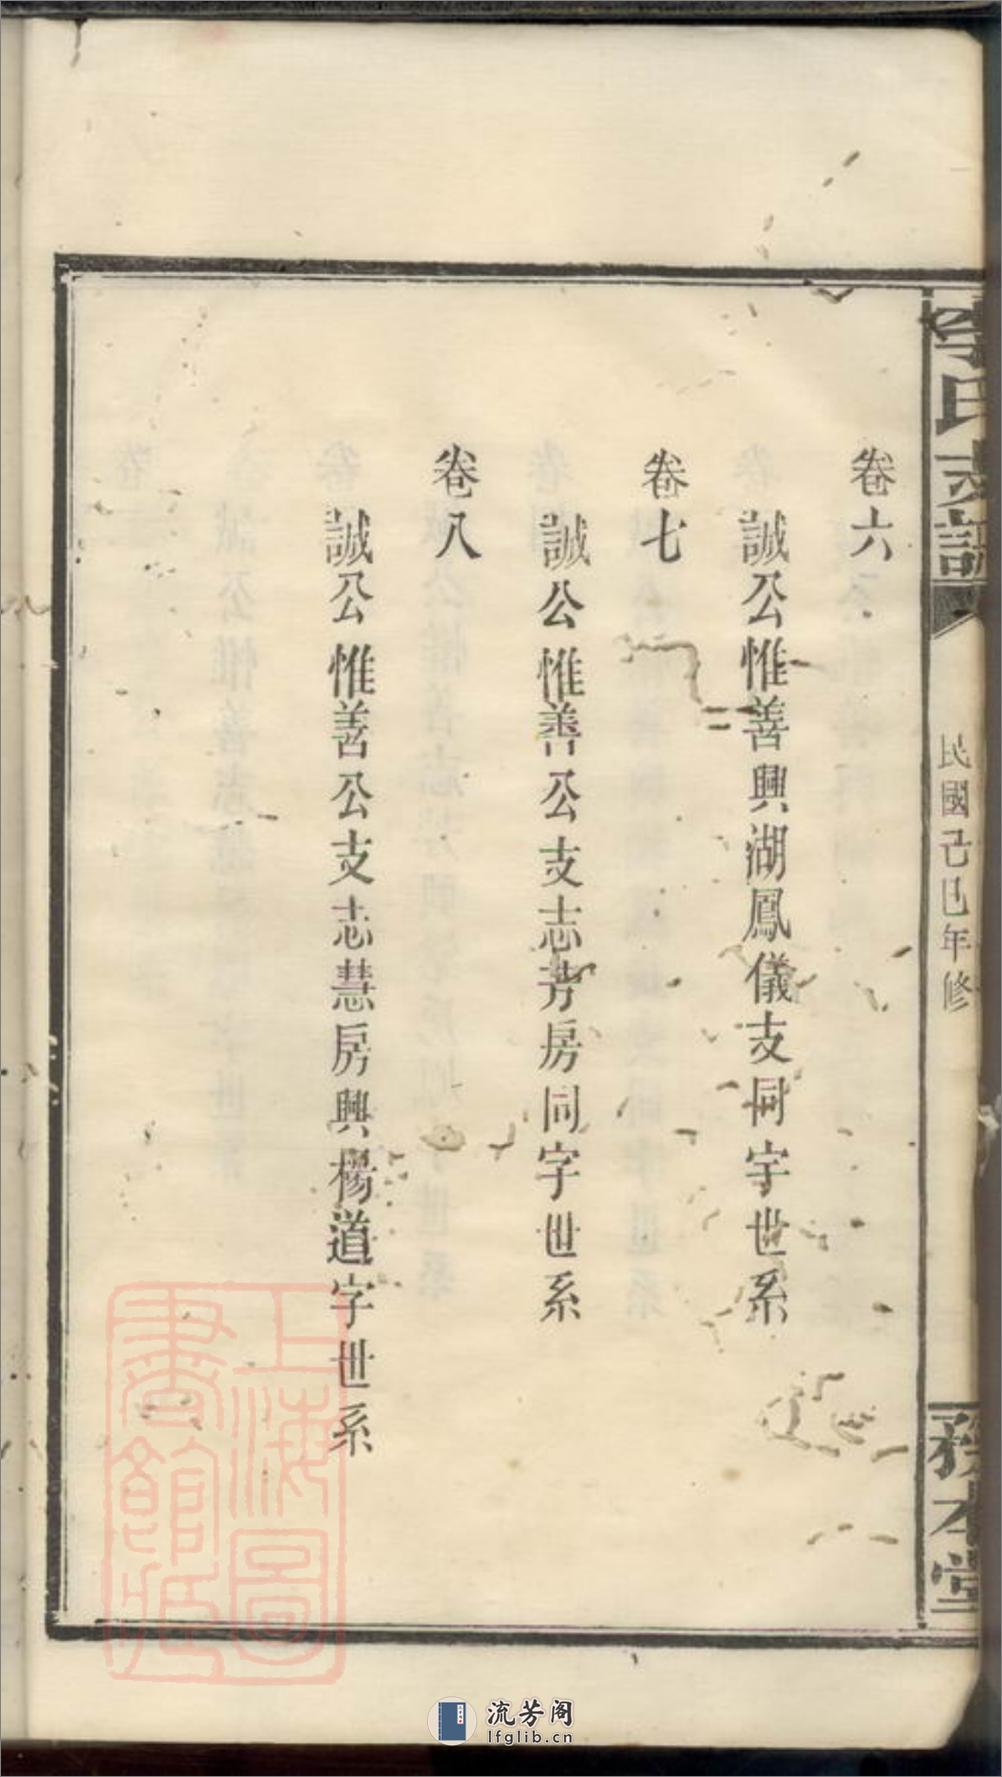 李氏支譜
民國己巳年修
務本堂
卷六
誠公惟善興湖鳳儀支同字世系
卷七
誠公惟善公支志芳房同字世系
卷八
誠公惟善公支志慧房興楊道字世系
上海圖
書館藏
流芳阁
lfglib.cn